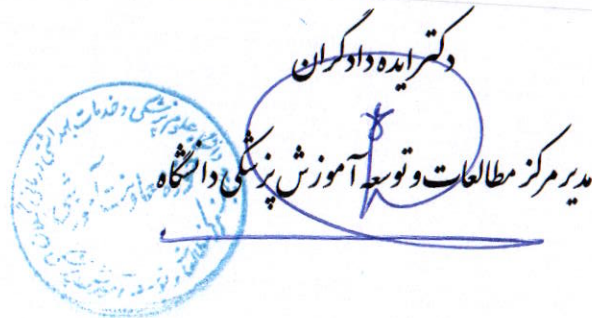 دکتر ایده دادگران
مدیر مرکز مطالعات و توسعه آموزش پزشکی دانشگاه
علوم پزشکی و خدمات بهداشتی درمانی
معاونت آموزشی